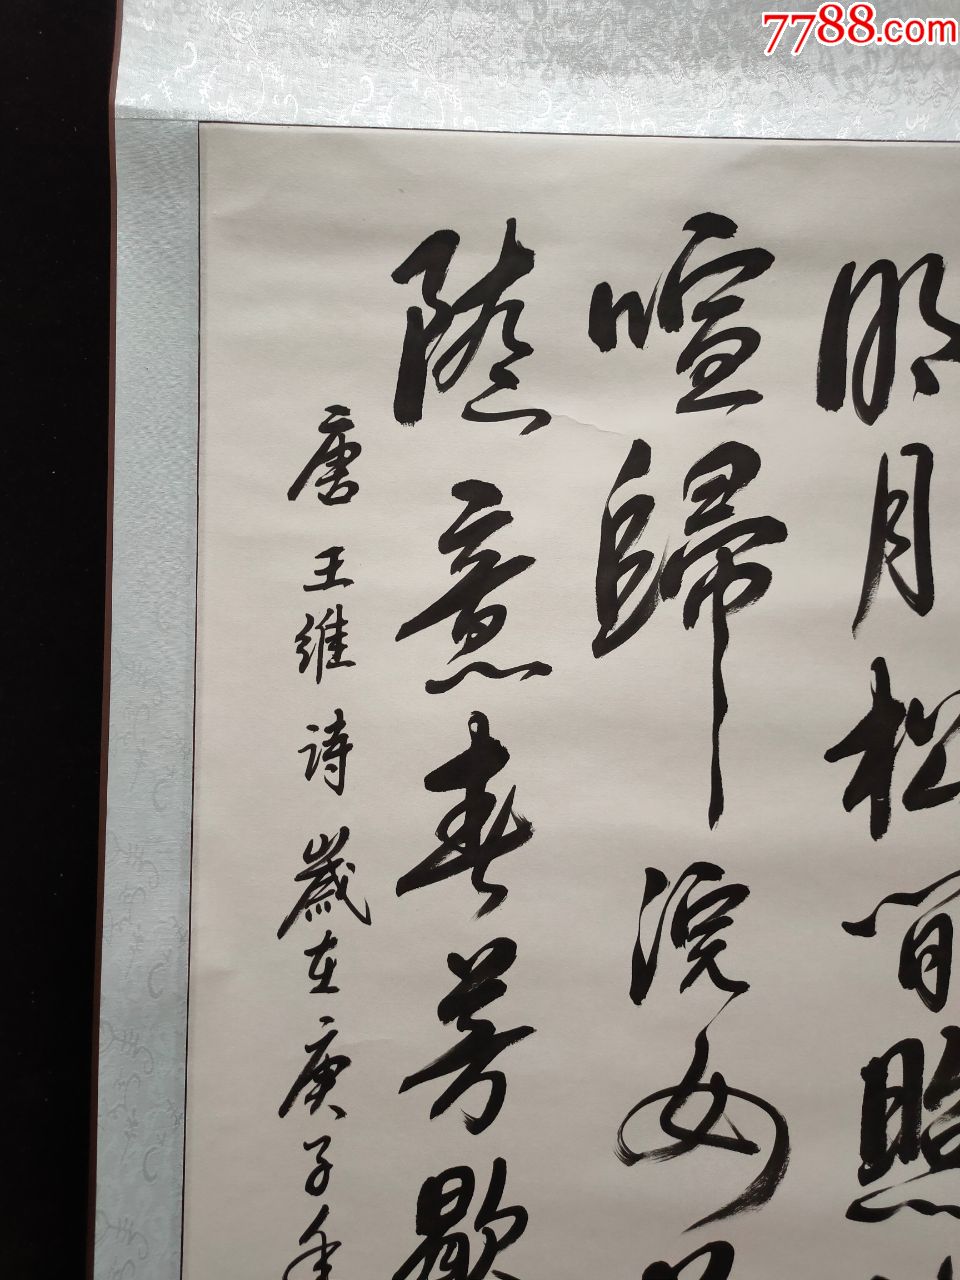 7788.com
明月松间照
喧歸浣女
随意春芳歇
唐王维诗歲在庚子年